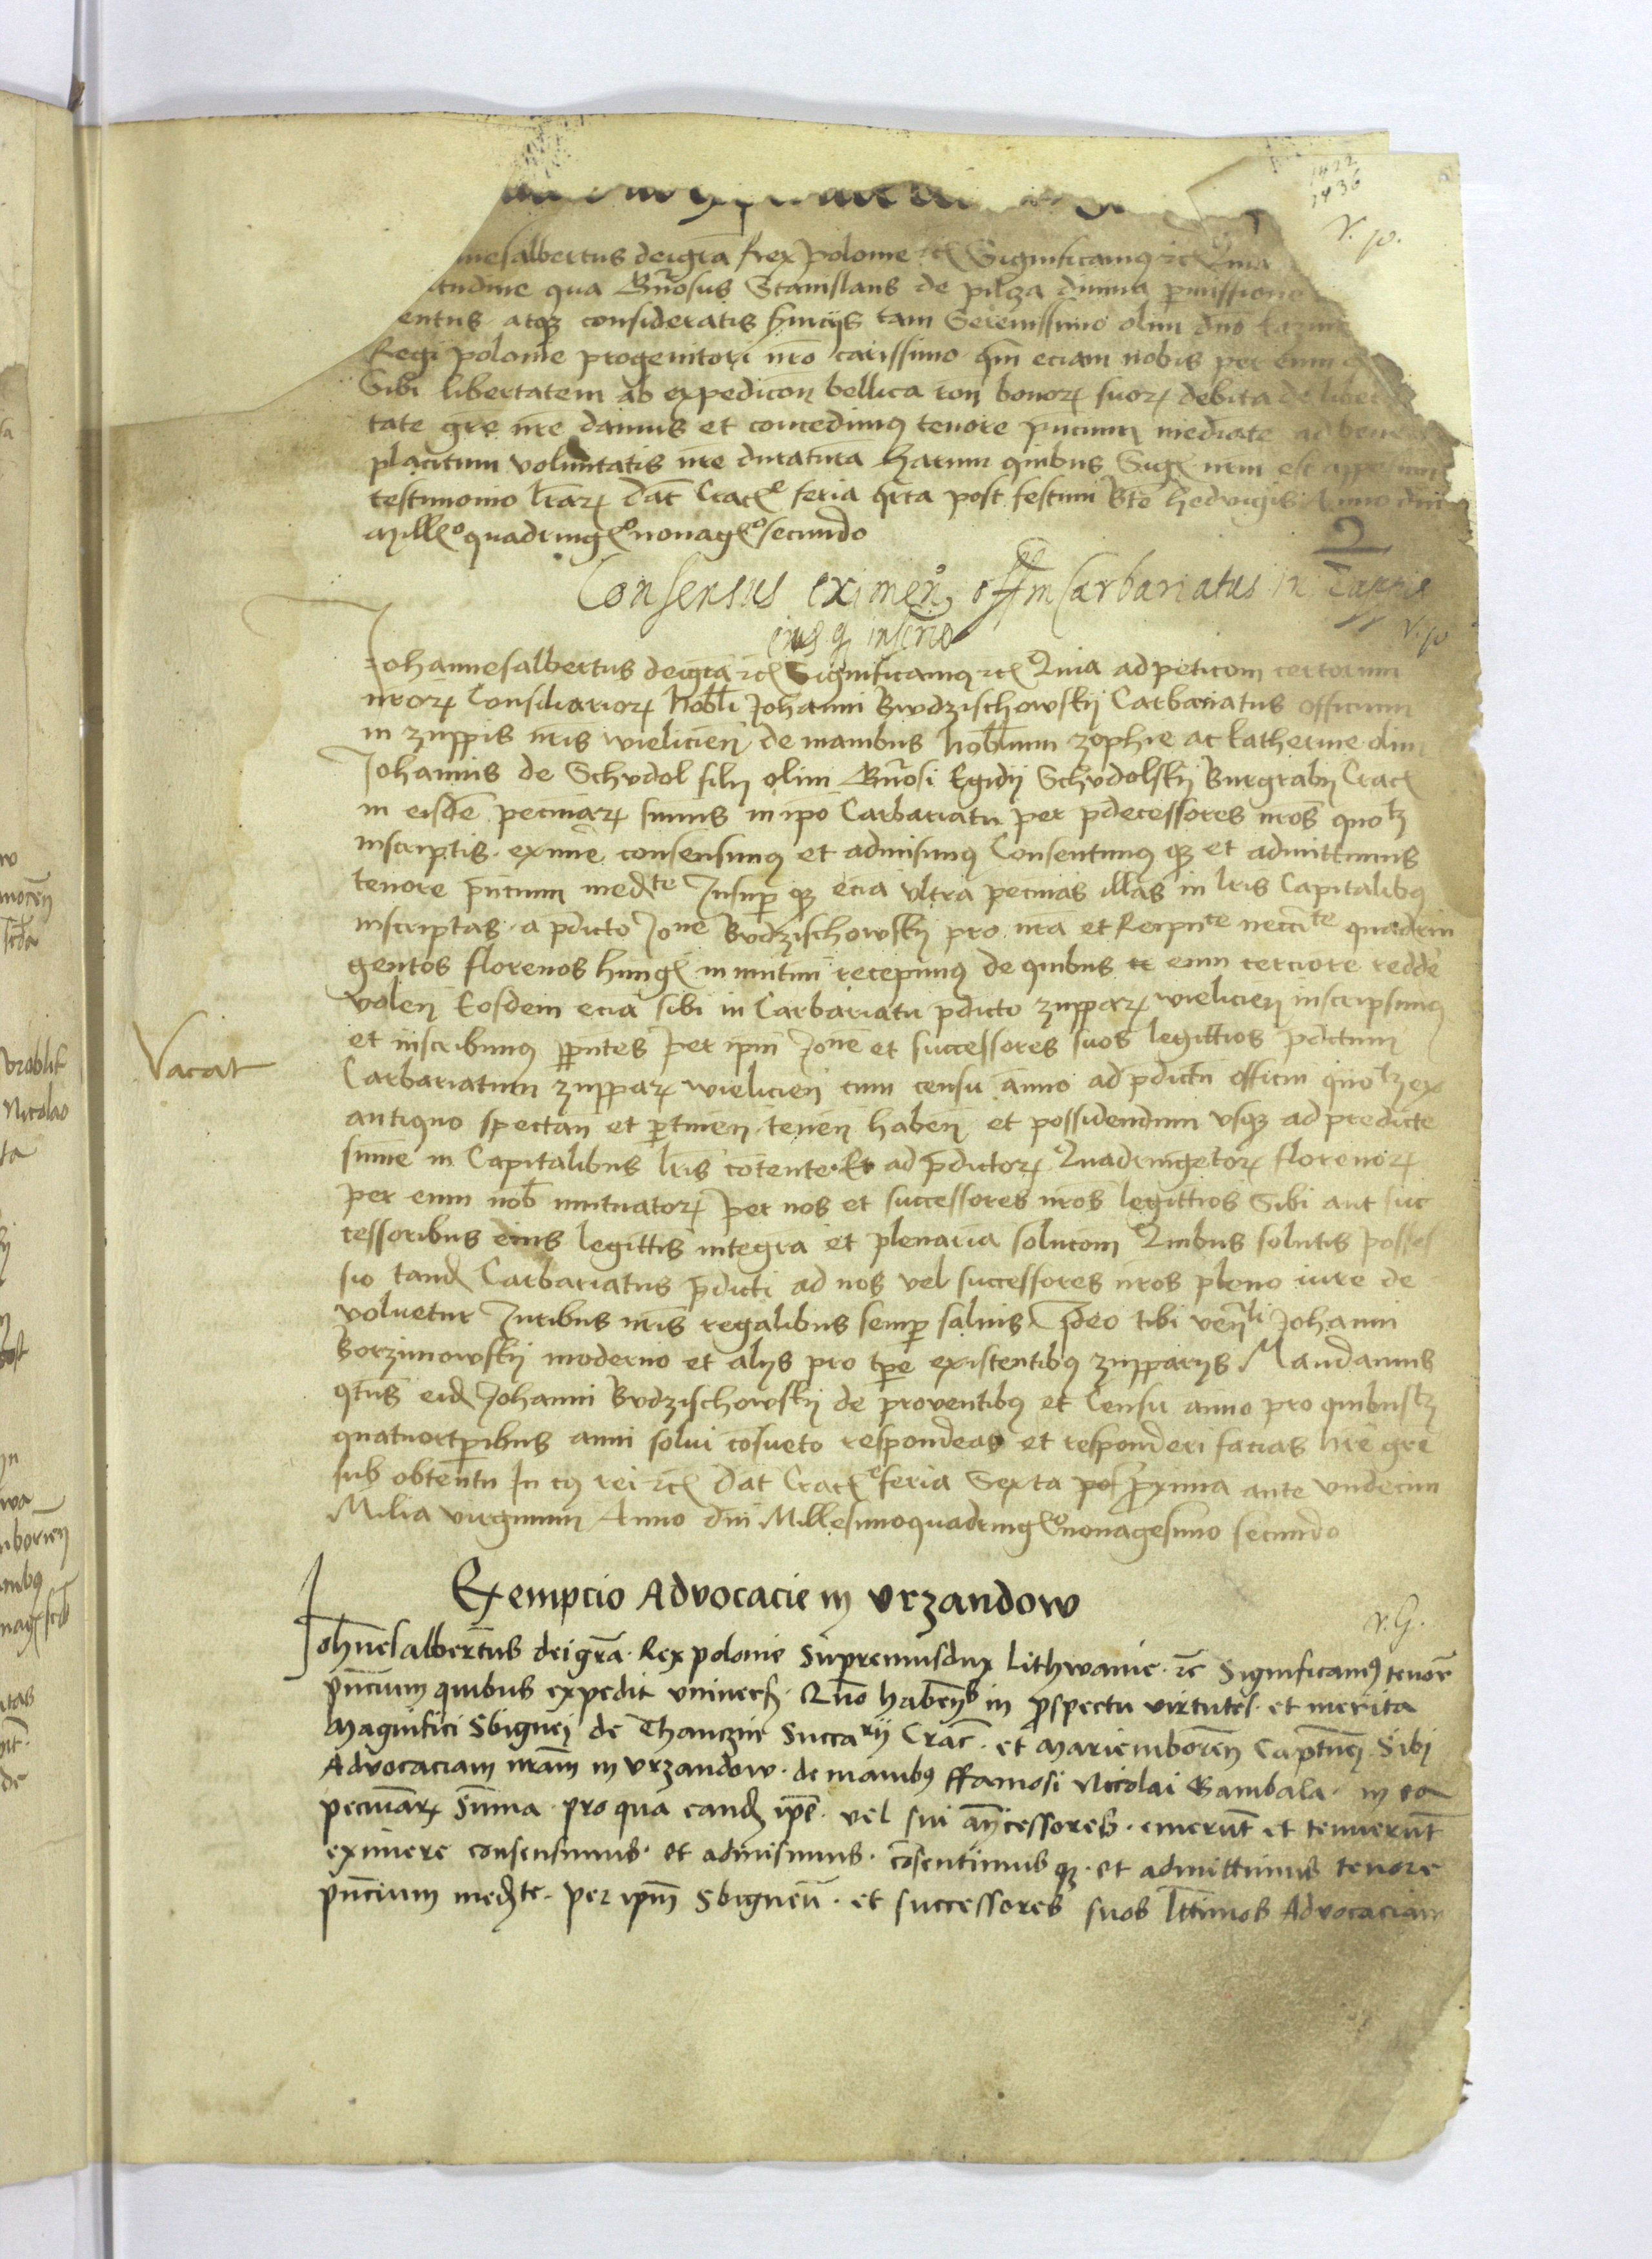 1422
1436
V. p.
nesalbertus deigra Rex polonie rc Significamus rc Quia
tudine qua Gnosus Stanislaus de pilcza diuina permissione
entus atqz consideratis seruicijs tam Serenissimo olim dno Kazimi
Regi polonie progenitori nro carissimo qm eciam nobis per eum
Sibi libertatem ab expedicon bellica ron bonor suor debita de liber
tate gre nre damus et concedimus tenore pncium mediate ad bene
placitum voluntatis nre duratura Harum quibus Sig nrm est appensum
testimonio lrar Dat Crac feria qrta post festum Bte hedvigis Anno dni
Mill quadring nonag secundo
2
Consensus eximen offm Carbariatus in
V. p
Johannesalbertus deigra rc Significamus rc Quia ad peticom certorum
nror Consiliarior Nobli Johanni Budzischowskij Carbariatus officium
in zuppis nris wielicien de manibus Nobilium zophie ac katherine olim
Johannis de Schvdol filij olim Gnosi Egidij Schvdolskij Burgrabij Crac
in eisde pecuniar sumis in ipo Carbariatu per pdecessores nros quolz
inscriptis exime consensimus et admisimus Consentimus qz et admittimus
tenore pncium medte Insup qz ecia vltra pecunias illas in lris Capitalibus
inscriptas a pdicto Jone Budzischowskij pro nra et Reipnte neccite quadrin
gentos florenos hung in mutuu recepimus de quibus eum cerciore redde
volen Eosdem ecia sibi in Carbariatu pdicto zuppar wielicien inscripsimus
et inscribimus pntes per ipm Jone et successores suos legittios pdictum
Vacat
Carbariatum zuppar wielicien cum censu anno ad pdictu officiu quolz ex
antiquo spectan et ptinen tenen haben et possidendum vsqz ad predicte
sume in Capitalibus lris cotente Et ad pdictor Quadringetor florenor
per eum nob mutuator per nos et successores nros legittios Sibi aut suc
cessoribus eius legittis integra et plenaria solucom Quibus solutis posses
sio tand Carbariatus pdicti ad nos vel successores nros pleno iure de
voluetur Juribus nris regalibus semp saluis Ideo tibi venli Johanni
Borzimowskij moderno et alijs pro tpe existentibus zupparijs Mandamus
qtus eid Johanni Budzischowskij de proventibus et Censu anno pro quibuslz
quatuortpibus anni solui cosueto respondeas et responderi facias nre gre
sub obtentu In cuius rei rc Dat Crac feria Sexta pof proxima ante vndecim
Milia virginum Anno dni Millesimoquadring nonagesimo secundo
Exempcio Advocacie in Vrzandow
v. G.
Johnesalbertus deigra Rex polonie Supremusdux Lithwanie rc Significamus tenore
pncium quibus expedit vniuers Quo habentes in prospectu virtutes et merita
Magnifici Sbignei de Thanczin Succarij Crac et Mariemboren Captnei Sibi
Advocaciam nram in vrzandow de manibus ffamosi Nicolai Gambala in ea
pecuniar Suma pro qua eand ipe vel sui antecessores emerunt et tenuerunt
eximere consensimus et admisimus cosentimus qz et admittimus tenore
pncium medte per ipm Sbigneu et successores suos lttimos Advocaciam